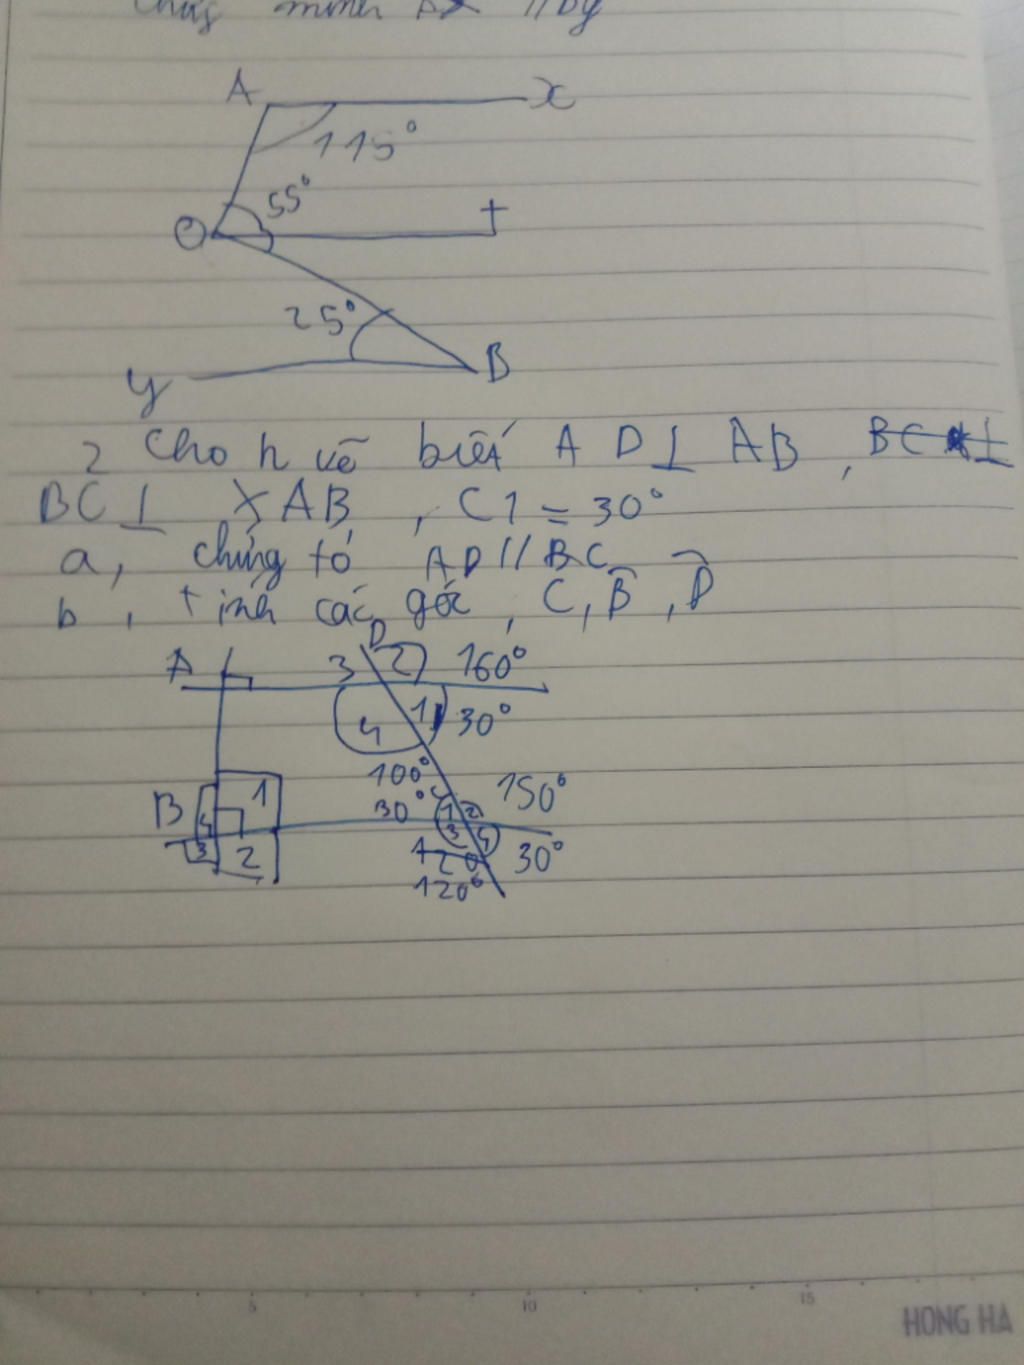 A x
115°
55°
O t
25°
y B
2 Cho h vẽ biết AD⊥ AB, BC ⊥
BC⊥ AB, C1 = 30°
a, chứng tỏ AD//BC
b, tính các góc, C, B, D
D
A 3 2 160°
4 1 30°
100°
B 1 30° 1 2 150°
4 3 4
3 2 120 30°
120°
5 10 15
HONG HA